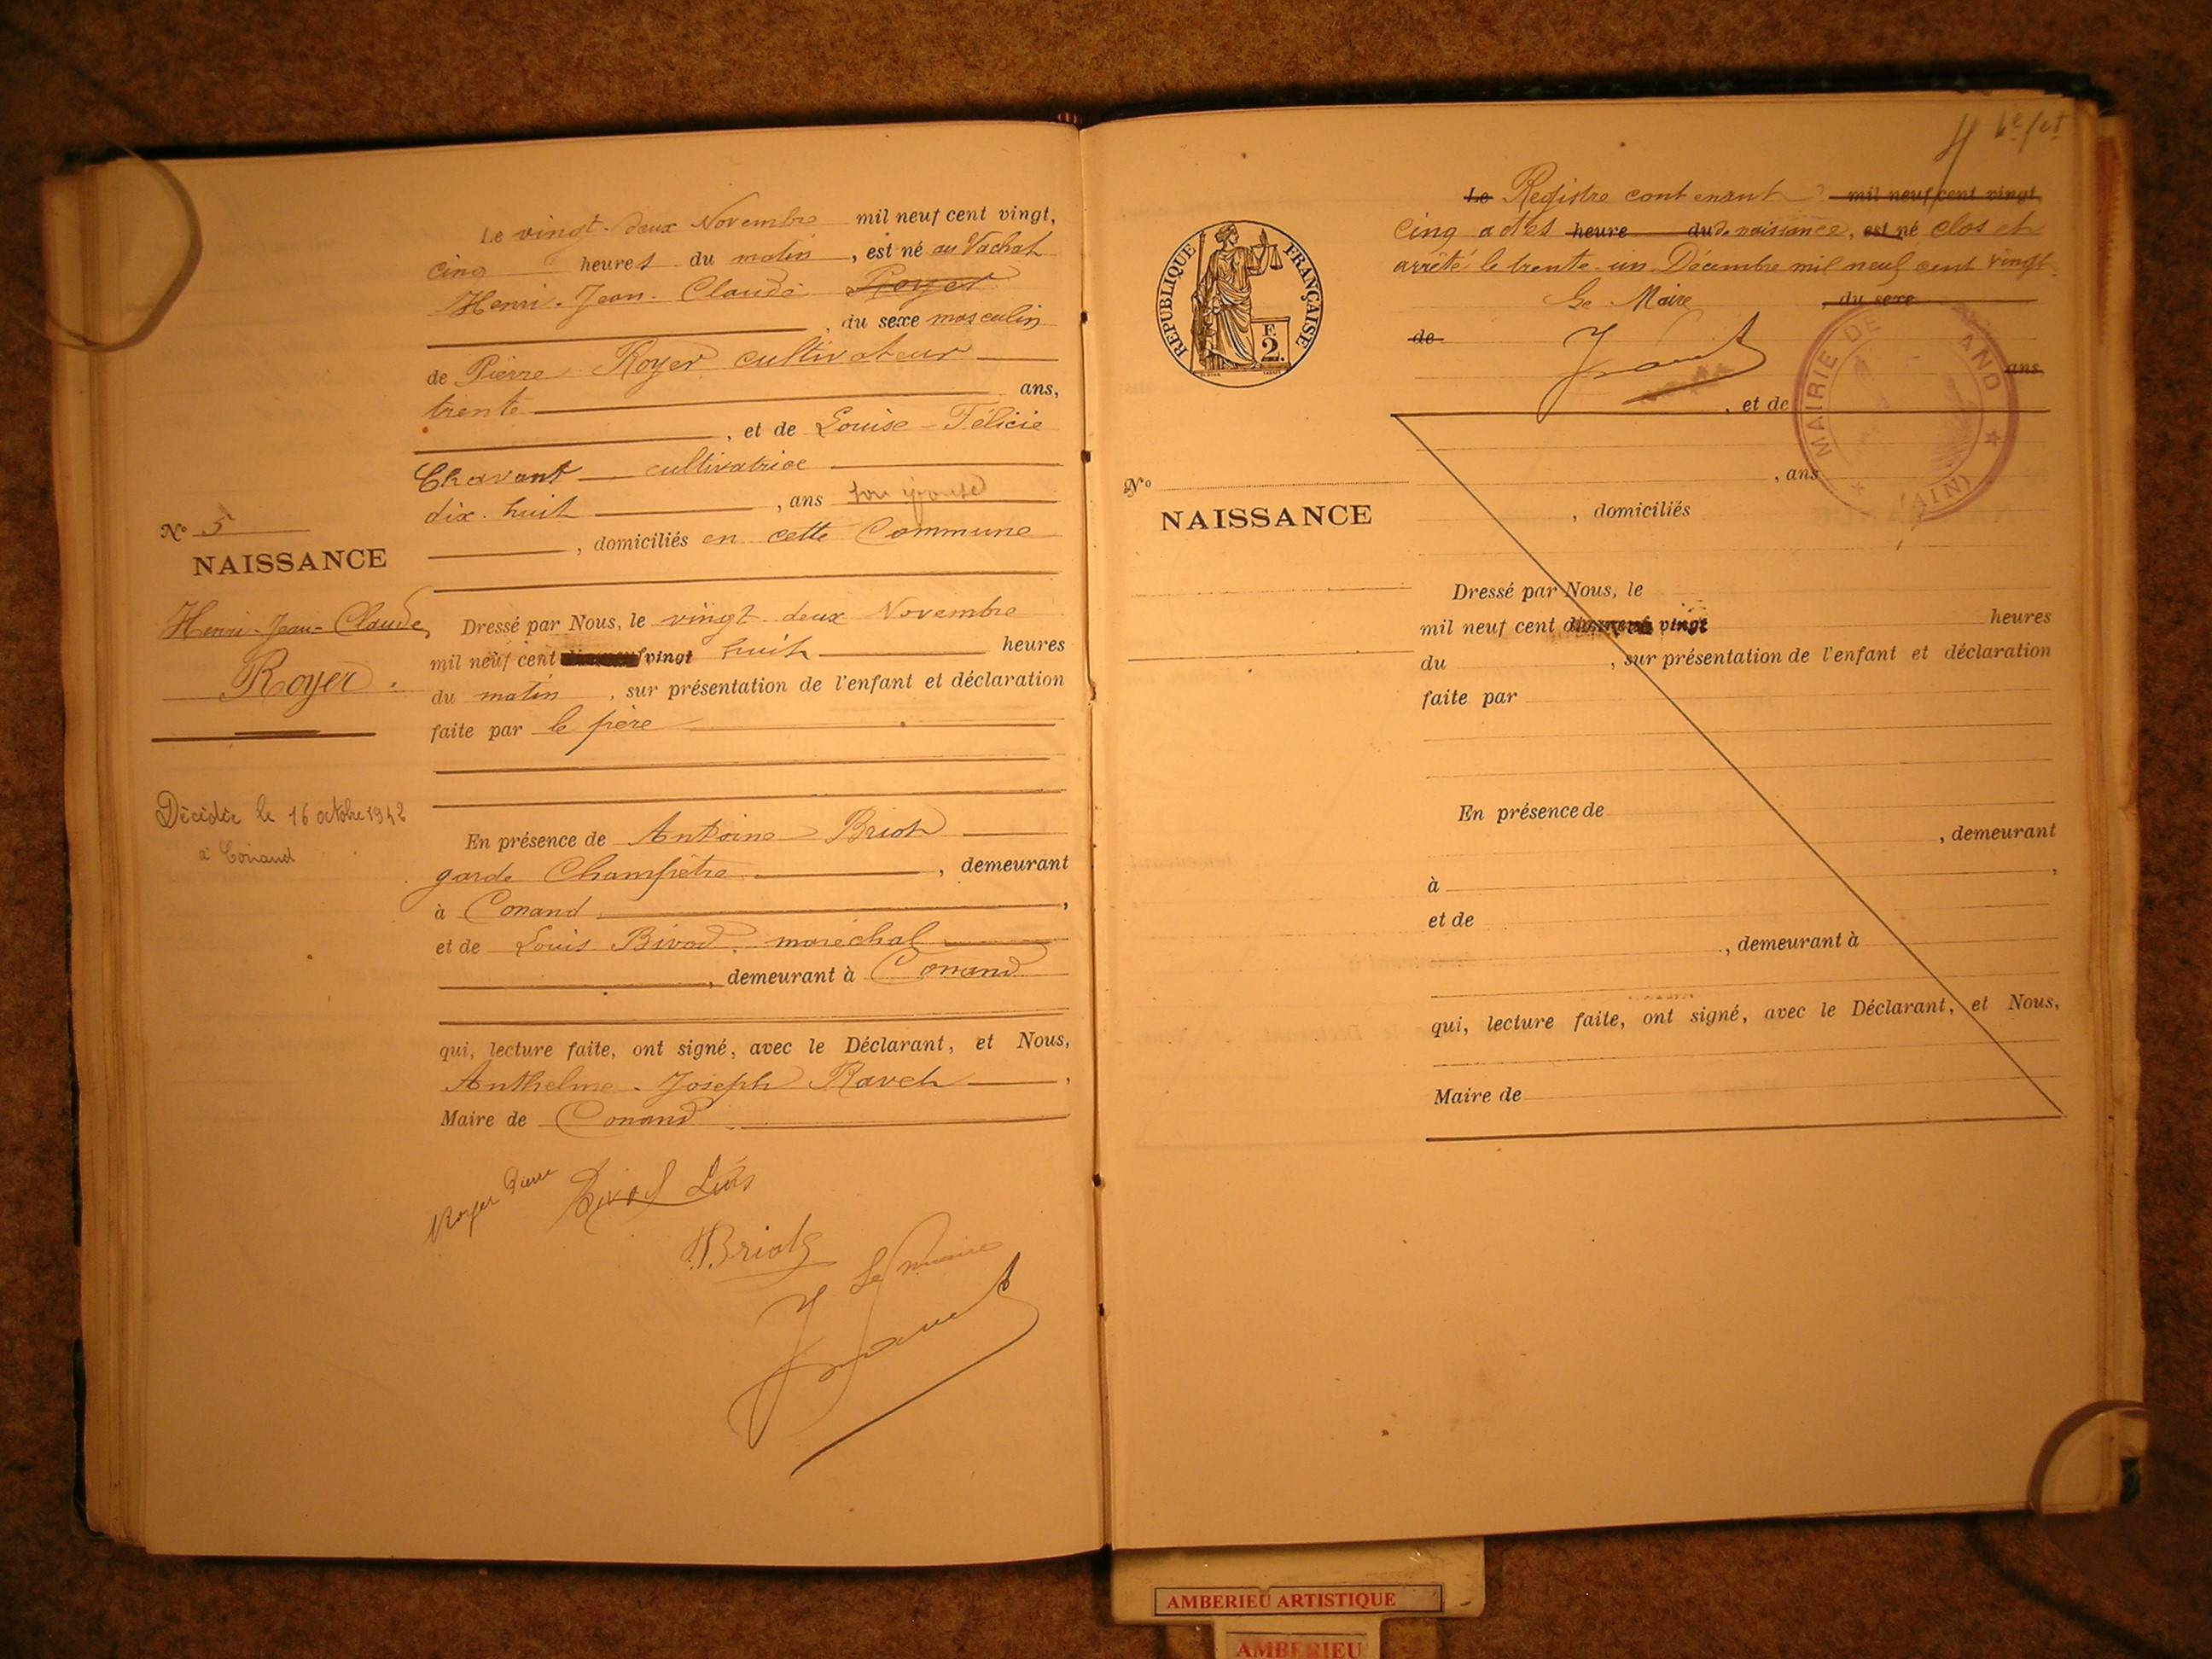 N° 5
NAISSANCE
Henri-Jean-Claude
Royer
Décédée le 16 octobre 1942
à Conand
Le vingt-deux Novembre mil neuf cent vingt,
cinq heures du matin, est né au Vachat
Henri-Jean-Claude Royer
, du sexe masculin
de Pierre Royer cultivateur
trente ans,
, et de Louise-Félicie
Chavant cultivatrice
dix-huit, ans son épouse
, domiciliés en cette Commune
Dressé par Nous, le vingt deux Novembre
mil neuf cent vingt huit heures
du matin, sur présentation de l'enfant et déclaration
faite par le père
En présence de Antoine Briot
garde Champêtre, demeurant
à Conand,
et de Louis Bivod, maréchal
, demeurant à Conand
qui, lecture faite, ont signé, avec le Déclarant, et Nous,
Anthelme-Joseph Ravet,
Maire de Conand
Royer Pierre
Louis
Briot
Le maire
J Ravet
RÉPUBLIQUE FRANÇAISE
F.
2.
N°
NAISSANCE
Le Registre contenant mil neuf cent vingt,
Cinq actes heure du de naissance, est né clos et
arrêté le trente-un Décembre mil neuf cent vingt.
Le Maire , du sexe
de
J Ravet
ans,
, et de
MAIRIE DE AND
(AIN)
, ans
, domiciliés
Dressé par Nous, le
mil neuf cent vingt heures
du , sur présentation de l'enfant et déclaration
faite par
En présence de
, demeurant
à ,
et de
, demeurant à
qui, lecture faite, ont signé, avec le Déclarant, et Nous,
Maire de
AMBERIEU ARTISTIQUE
AMBERIEU